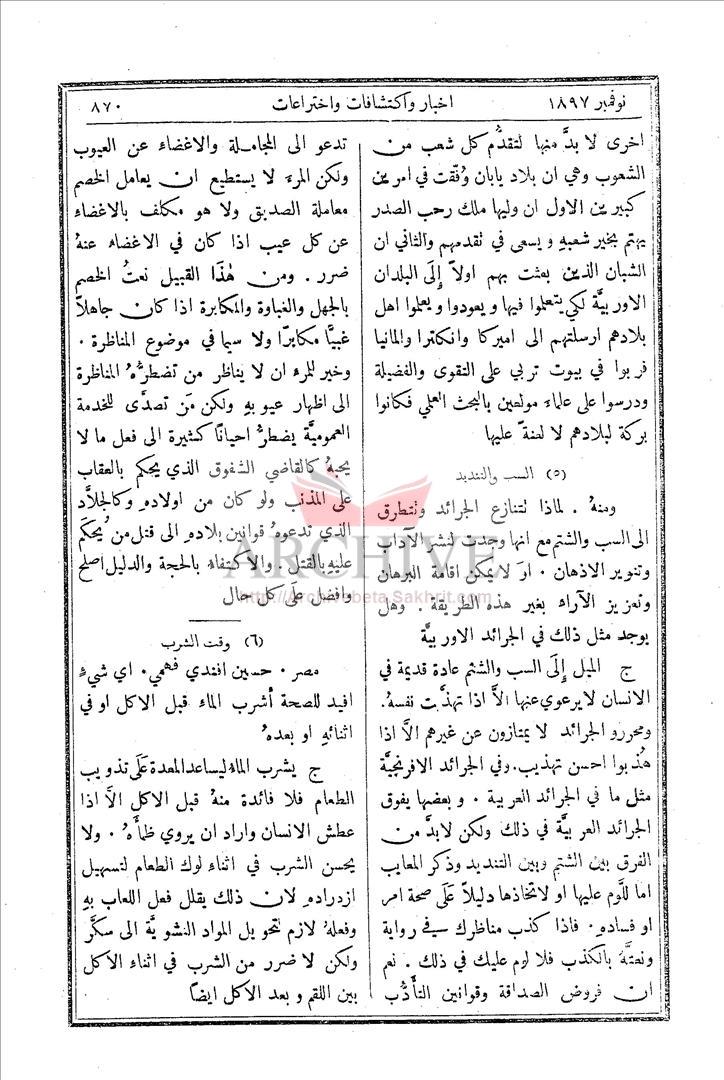 نوفمبر ١٨٩٧
اخبار واكتشافات واختراعات
٨٧٠
اخرى لا بدَّ منها لتقدُّم كل شعب من
الشعوب وهي ان بلاد يابان وُفقت في امرين
كبيرين الاول ان وليها ملك رحب الصدر
يهتم بخير شعبهِ ويسعى في نقدمهم والثاني ان
الشبان الذين بعثت بهم اولاً إِلَى البلدان
الاوربيَّة لكي يتعلموا فيها و يعودوا ويعلموا اهل
بلادهم ارسلتهم الى اميركا وانكلترا والمانيا
فربوا في بيوت تربي على التقوى والفضيلة
ودرسوا على علماء مولعين بالبحث العلمي فكانوا
بركة لبلادهم لا لعنة عليها
(٥) السب والتنديد
ومنهُ . لماذا تتنازع الجرائد وتتطرق
الى السب والشتم مع انها وجدت لنشر الآداب
وتنوير الاذهان . أَوَ لا يمكن اقامة البرهان
وتعزيز الآراء بغير هذه الطريقة . وهل
يوجد مثل ذلك في الجرائد الاوربيَّة
ج الميل إِلَى السب والشتم عادة قديمة في
الانسان لا يرعوي عنها الاَّ اذا تهذَّبت نفسهُ .
ومحررو الجرائد لا يمتازون عن غيرهم الاَّ اذا
هُذبوا احسن تهذيب . وفي الجرائد الافرنجيَّة
مثل ما في الجرائد العربية . وبعضها يفوق
الجرائد العربيَّة في ذلك ولكن لا بدَّ من
الفرق بين الشتم وبين التنديد وذكر المعايب
اما للَّوم عليها او لاتخاذها دليلاً عَلَى صحة امر
او فساده . فاذا كذب مناظرك في رواية
ونعتَّهُ بالكذب فلا لوم عليك في ذلك . نعم
ان فروض الصداقة وقوانين التأَدُّب
تدعو الى المجاملة والاغضاء عن العيوب
ولكن المرء لا يستطيع ان يعامل الخصم
معاملة الصديق ولا هو مكلف بالاغضاء
عن كل عيب اذا كان في الاغضاء عنهُ
ضرر . ومن هٰذَا القبيل نعتُ الخصم
بالجهل والغباوة والمكابرة اذا كان جاهلاً
غبيًّا مكابرًا ولا سيما في موضوع المناظرة .
وخير للمرء ان لا يناظر من تضطرُّهُ المناظرة
الى اظهار عيوبهِ ولكن مَن تصدَّى للخدمة
العموميَّة يضطرُّ احيانًا كثيرة الى فعل ما لا
يحبهُ كالقاضي الشفوق الذي يحكم بالعقاب
على المذنب ولو كان من اولاده وكالجلاَّد
الذي تدعوهُ قوانين بلاده الى قتل من يُحكَم
عليهِ بالقتل . والاكتفاء بالحجة والدليل اصلح
وافضل عَلَى كل حال
(٦) وقت الشرب
مصر . حسين افندي فهمي . اي شيءٍ
افيد للصحة أشرب الماء قبل الاكل او في
اثنائهِ او بعدهُ
ج يشرب الماء ليساعد المعدة عَلَى تذويب
الطعام فلا فائدة منهُ قبل الاكل الاَّ اذا
عطش الانسان واراد ان يروي ظمأَهُ . ولا
يحسن الشرب في اثناء لوك الطعام لتسهيل
ازدراده لان ذلك يقلل فعل اللعاب بهِ
وفعلهُ لازم لتحويل المواد النشويَّة الى سكَّر
ولكن لا ضرر من الشرب في اثناء الاكل
بين اللقم وبعد الاكل ايضًا
ARCHIVE
http://Archivebeta.Sakhrit.com